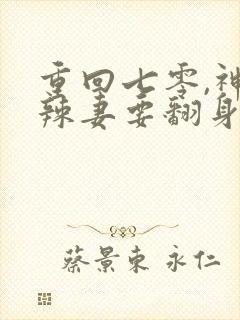 重回七零,神
辣妻要翻身
蔡景东 永仁